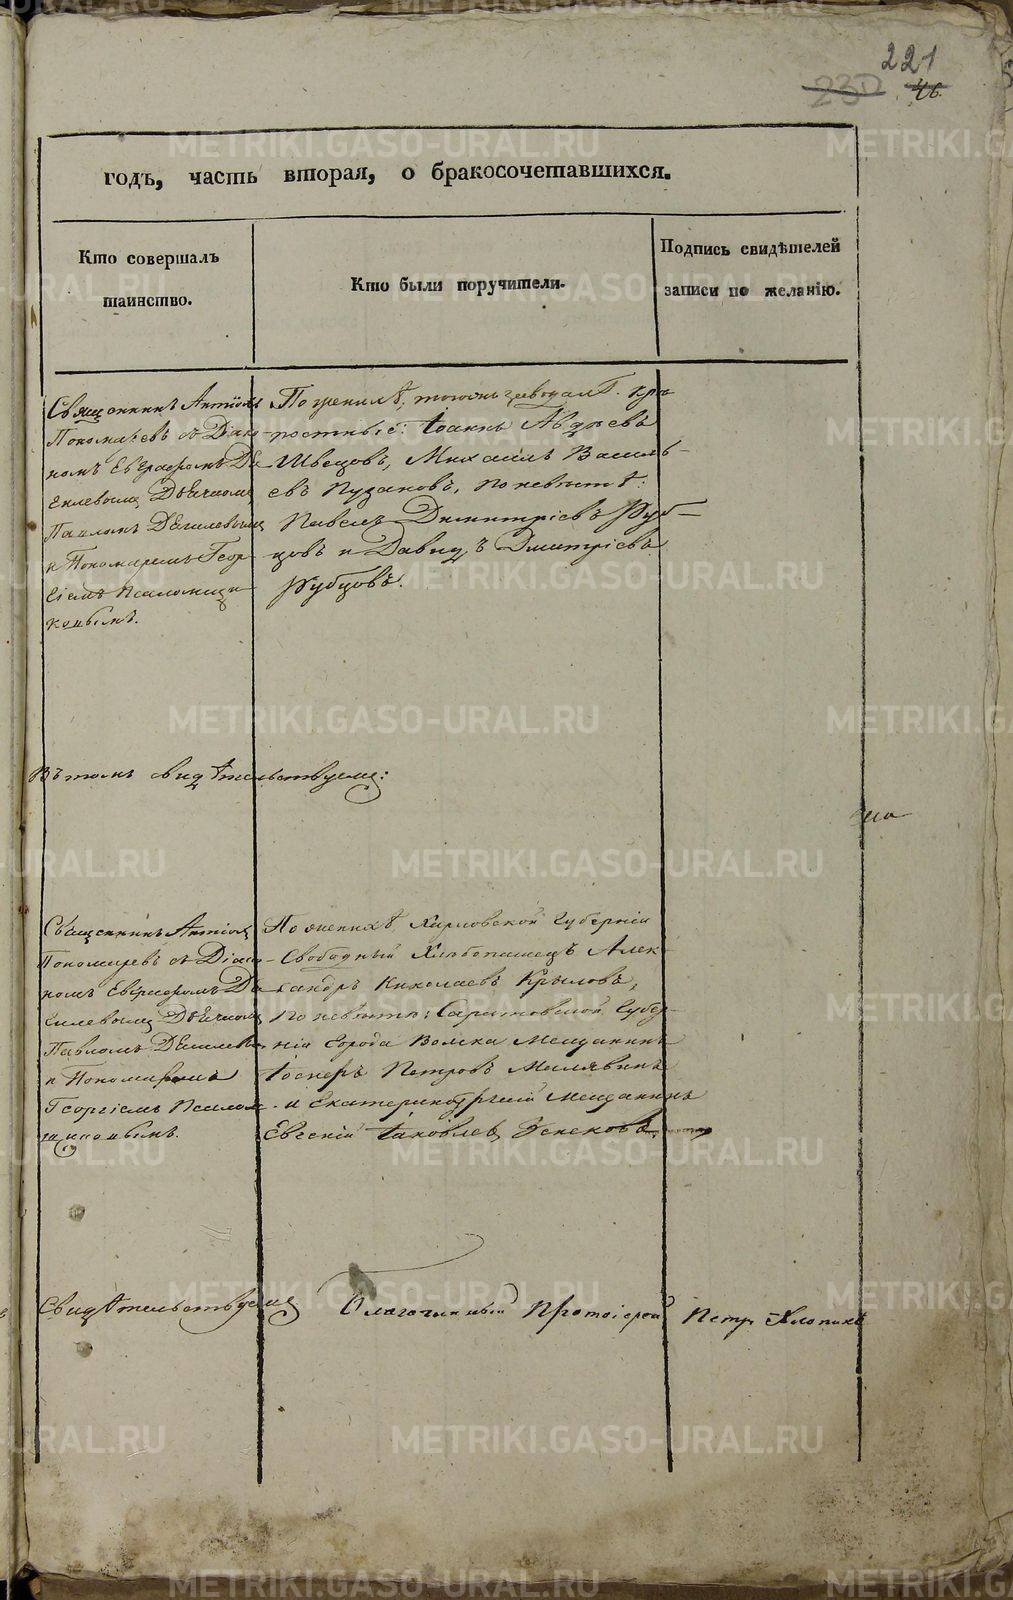 221
230 46.
годъ, часть вторая, о бракосочетавшихся.
Кто совершалъ
таинство.
Кто были поручители.
Подпись свидѣтелей
записи по желанію.
Священникъ Антіохъ
Пономаревъ съ Діако-
номъ Евграфомъ
Дьячкомъ
Павломъ
и Пономаремъ Геор-
гіемъ Псаломщи-
ковымъ.
По женихѣ; тогожъ завода Г. Кре-
постные: Іоаннъ Авдѣевъ
Швецовъ, Михаилъ Василь-
евъ Пузановъ, по невѣстѣ:
Павелъ Димитріевъ Руб-
цовъ и Давидъ Дмитріевъ
Рубцовъ.
Въ томъ свидѣтельствуемъ:
Священникъ Антіохъ
Пономаревъ съ Діако-
номъ Евграфомъ
Дьячкомъ
Павломъ
и Пономаремъ
Георгіемъ Псалом-
щиковымъ.
По женихѣ, Харьковской Губерніи
Свободный Хлѣбопашецъ Алек-
сандръ Николаевъ Крыловъ,
по невѣстѣ: Саратовской Губер-
ніи города Волска Мещанинъ
Іосифъ Петровъ Малявинъ
и Екатеринбургскій Мещанинъ
Евсевій Іаковлевъ
Свидѣтельствуемъ
Благочинный Протоіерей Петръ Хлопинъ
METRIKI.GASO-URAL.RU